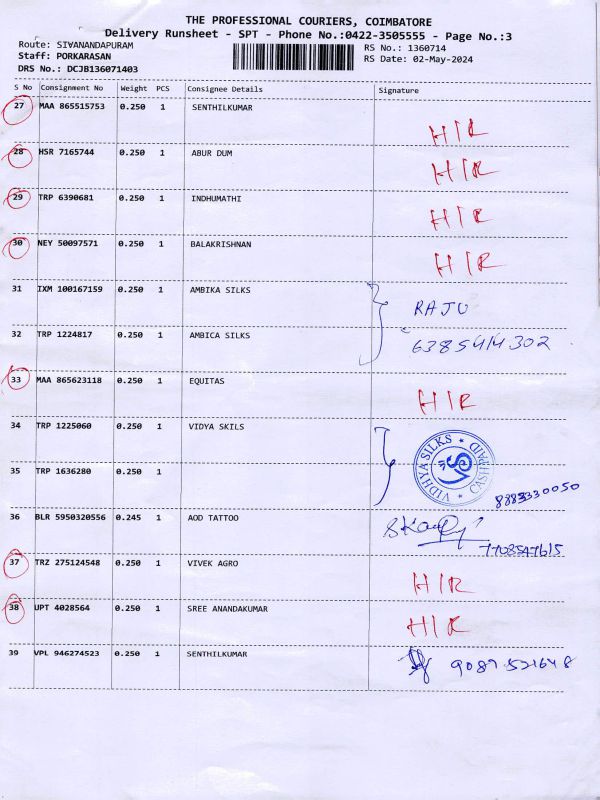 THE PROFESSIONAL COURIERS, COIMBATORE
Delivery Runsheet - SPT - Phone No.:0422-3505555 - Page No.:3
Route: SIVANANDAPURAM RS No.: 1360714
Staff: PORKARASAN RS Date: 02-May-2024
DRS No.: DCJB136071403
S No Consignment No Weight PCS Consignee Details Signature
27 MAA 865515753 0.250 1 SENTHILKUMAR H/R
28 HSR 7165744 0.250 1 ABUR DUM H/R
29 TRP 6390681 0.250 1 INDHUMATHI H/R
30 NEY 50097571 0.250 1 BALAKRISHNAN H/R
31 IXM 100167159 0.250 1 AMBIKA SILKS RAJU
32 TRP 1224817 0.250 1 AMBICA SILKS 6385414302
33 MAA 865623118 0.250 1 EQUITAS H/R
34 TRP 1225060 0.250 1 VIDYA SKILS
VIDHYA SILKS * CASH PAID *
35 TRP 1636280 0.250 1 8883330050
36 BLR 5950320556 0.245 1 AOD TATTOO
7708547615
37 TRZ 275124548 0.250 1 VIVEK AGRO H/R
38 UPT 4028564 0.250 1 SREE ANANDAKUMAR H/R
39 VPL 946274523 0.250 1 SENTHILKUMAR 9087521648